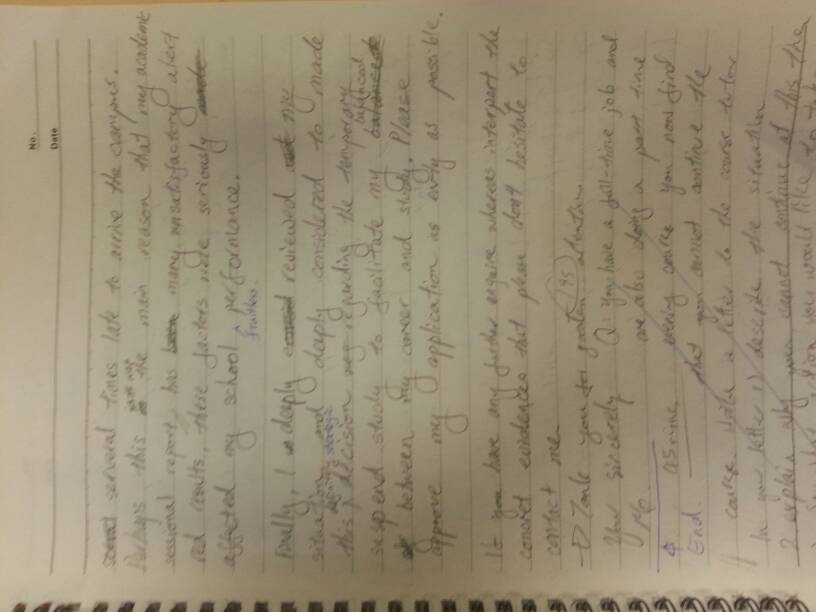 No.
Date
serveral times late to arrive the campus.
Perhaps this the main reason that my academic
sessional report, has many unsatisfactory alert
red results, these factors were seriously
affected my school performance.
Finally, I deeply reviewed my
situation and deeply considered to made
this decision regarding the temporary
suspend study to facilitate my balanced
between my career and study. Please
approve my application as early as possible.
If you have any further enquire whereas interport the
concret evidences that please don't hesitate to
contact me
you for
(95)
Your sincerely
Q: You have a full-time job and
are also doing a part time
evening course you now find
End.
that you cannot continue the
course write a letter to the course tutor
In your letter 1) describe the situation
2 explain why you cannot continue at this
action you would like to